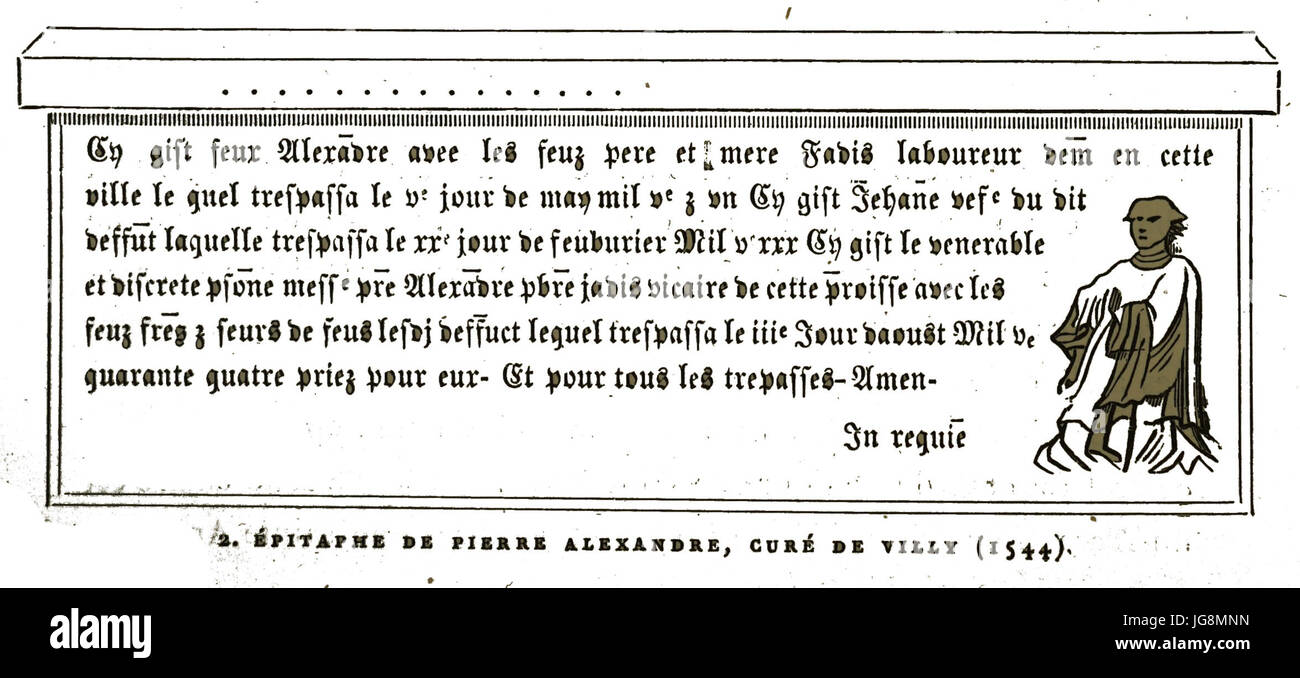 . . . . . . . . . . . . . . . .
Cy gist feux Alexādre avec les feuz pere et mere Jadis laboureur dem̄ en cette
ville le quel trespassa le vᵉ jour de may mil vᶜ z vn Cy gist Jehan̄e vefᵉ du dit
deffūt laquelle trespassa le xxᵉ jour de feuburier Mil vᶜxxx Cy gist le venerable
et discrete psōne messᵉ pr̄e Alexādre pbr̄e jadis vicaire de cette p̄roisse avec les
feuz frēs z seurs de feus lesdj deff̄uct lequel trespassa le iiiᵉ Jour daoust Mil vc
quarante quatre priez pour eux- Et pour tous les trepasses-Amen-
In requiē
2. ÉPITAPHE DE PIERRE ALEXANDRE, CURÉ DE VILLY (1544).
alamy
Image ID: JG8MNN
www.alamy.com